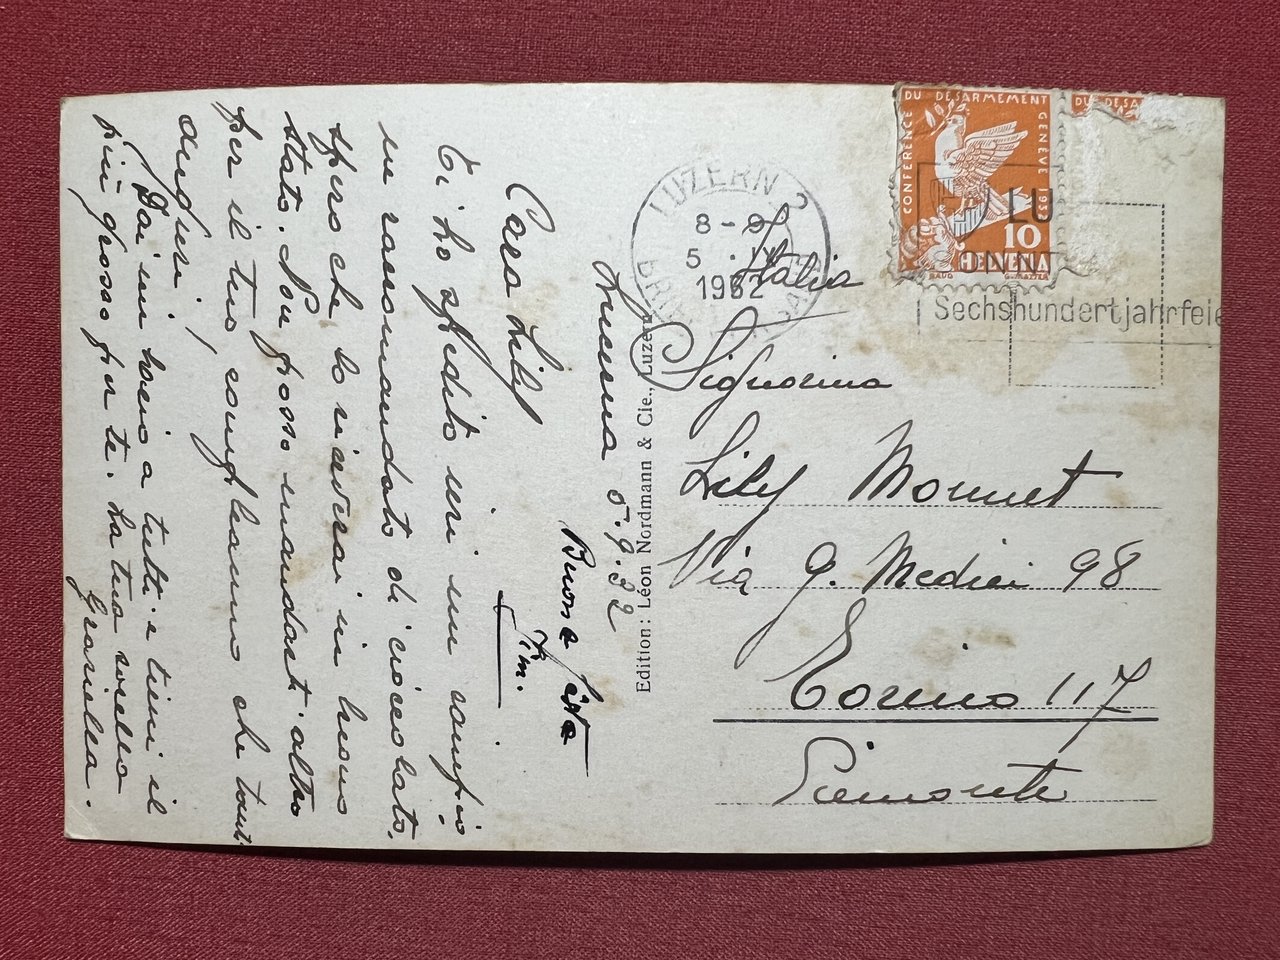 Lucerna 5.9.32
Cara Lily
Ti ho spedito ieri un campio.
ne raccomandato di cioccolato.
spero che lo riavrai in buono
stato. Non posso mandarti altro
per il tuo compleanno che tanti
auguri,
Dai un bacio a tutti e tieni il
più grosso per te. La tua sorella
Graziella.
Buona festa
Edition: Léon Nordmann & Cie., Luzern
CONFÉRENCE DU DÉSARMEMENT GENÈVE 193
10
HELVETIA
DU DÉSA
LUZERN 2
8-9
5. IX
1932
LU
Sechshundertjahrfeie
Italia
Signorina
Lily Monnet
Via G. Medici 98
Torino 117
Piemonte